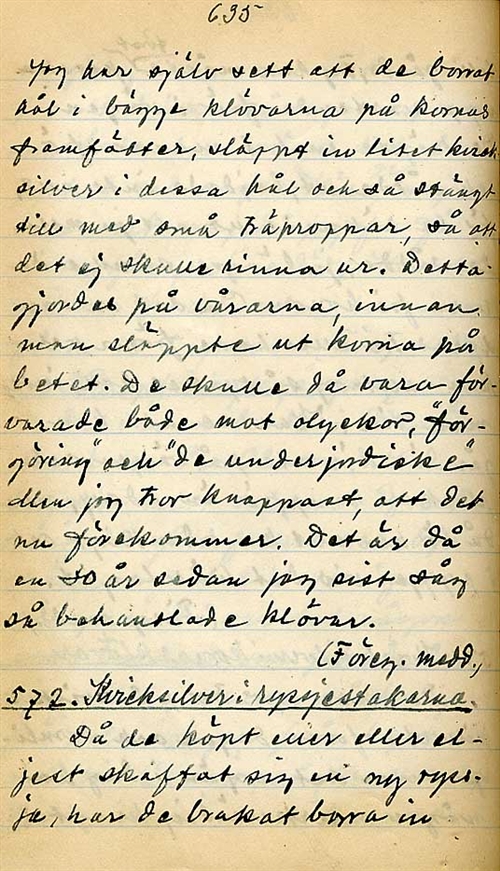 635
Jag har själv sett att de borrat
hål i bägge klövarna på kornas
framfötter, släppt in litet kvick
silver i dessa hål och så stängt
till med små träproppar, så att
det ej skulle rinna ur. Detta
gjordes på vårarna, innan
man släppte ut korna på
betet. De skulle då vara för-
varade både mot olyckor, "för-
göring" och "de underjordiske"
Men jag tror knappast, att det
nu förekommer. Det är då
en 30 år sedan jag sist såg
så behandlade klövar.
(Föreg. medd.)
572. Kvicksilver i rysjestakarna.
Då de köpt eller eller el-
jest skaffat sig en ny rys-
ja, har de brukat borra in